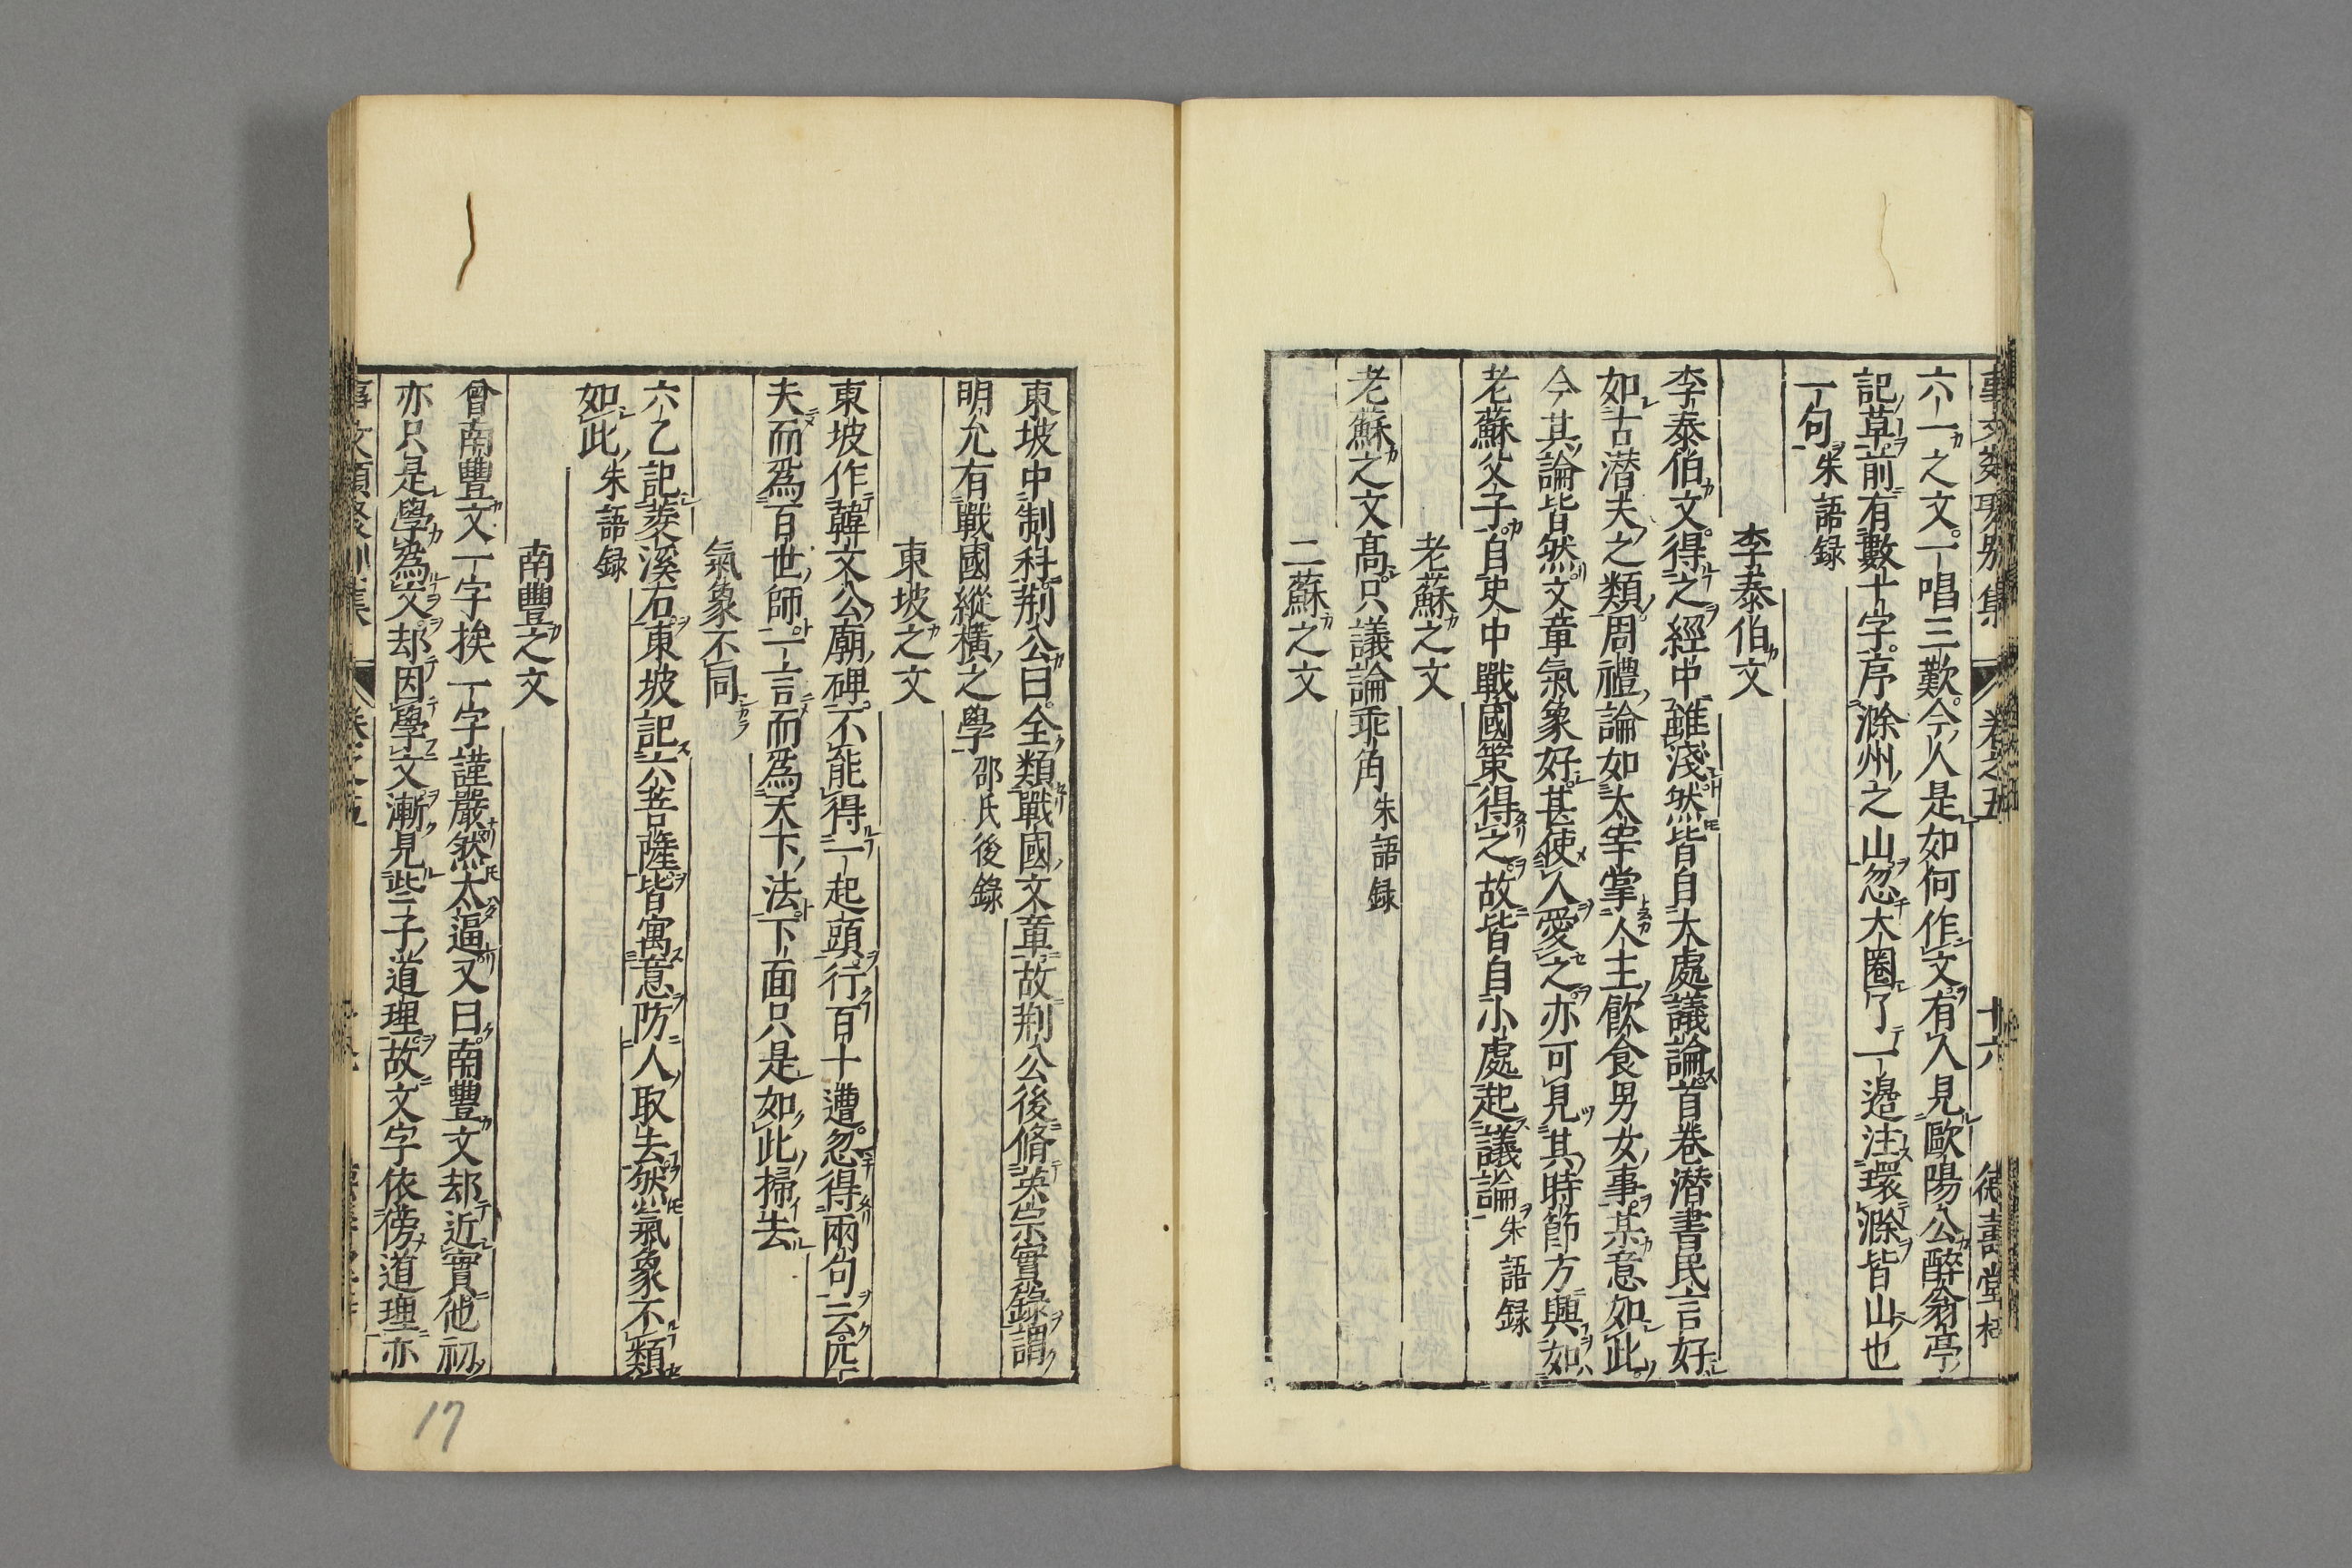 事文類聚別集 卷之五 十六 德壽堂梓
六一之文一唱三歎今人是如何作文有人見歐陽公醉翁亭
記草前有數十字序滁州之山忽大圈了一邉注環滁皆山也
一句朱語録
李泰伯文
李泰伯文得之經中雖淺然皆自大處議論首巻潜書民言好
如古潜夫之類周禮論如太宰掌人主飲食男女事某意如此
今其論皆然文章氣象好甚使人愛之亦可見其時節方興如
老蘇父子自史中戰國策得之故皆自小處起議論朱語録
老蘇之文
老蘇之文高只議論乖角朱語録
二蘇之文
東坡中制科荆公曰全類戰國文章故荆公後脩英宗實錄謂
明允有戰國縱横之學邵氏後錄
東坡之文
東坡作韓文公廟碑不能得一起頭行百十遭忽得兩句云匹
夫而爲百世師一言而爲天下法下面只是如此掃去
氣象不同
六乙記菱溪石東坡記六菩薩皆寓意防人取去然氣象不類
如此朱語録
南豐之文
曾南豐文一字挨一字謹嚴然太逼又曰南豐文却近實他初
亦只是學爲文却因學文漸見些子道理故文字依傍道理亦
17